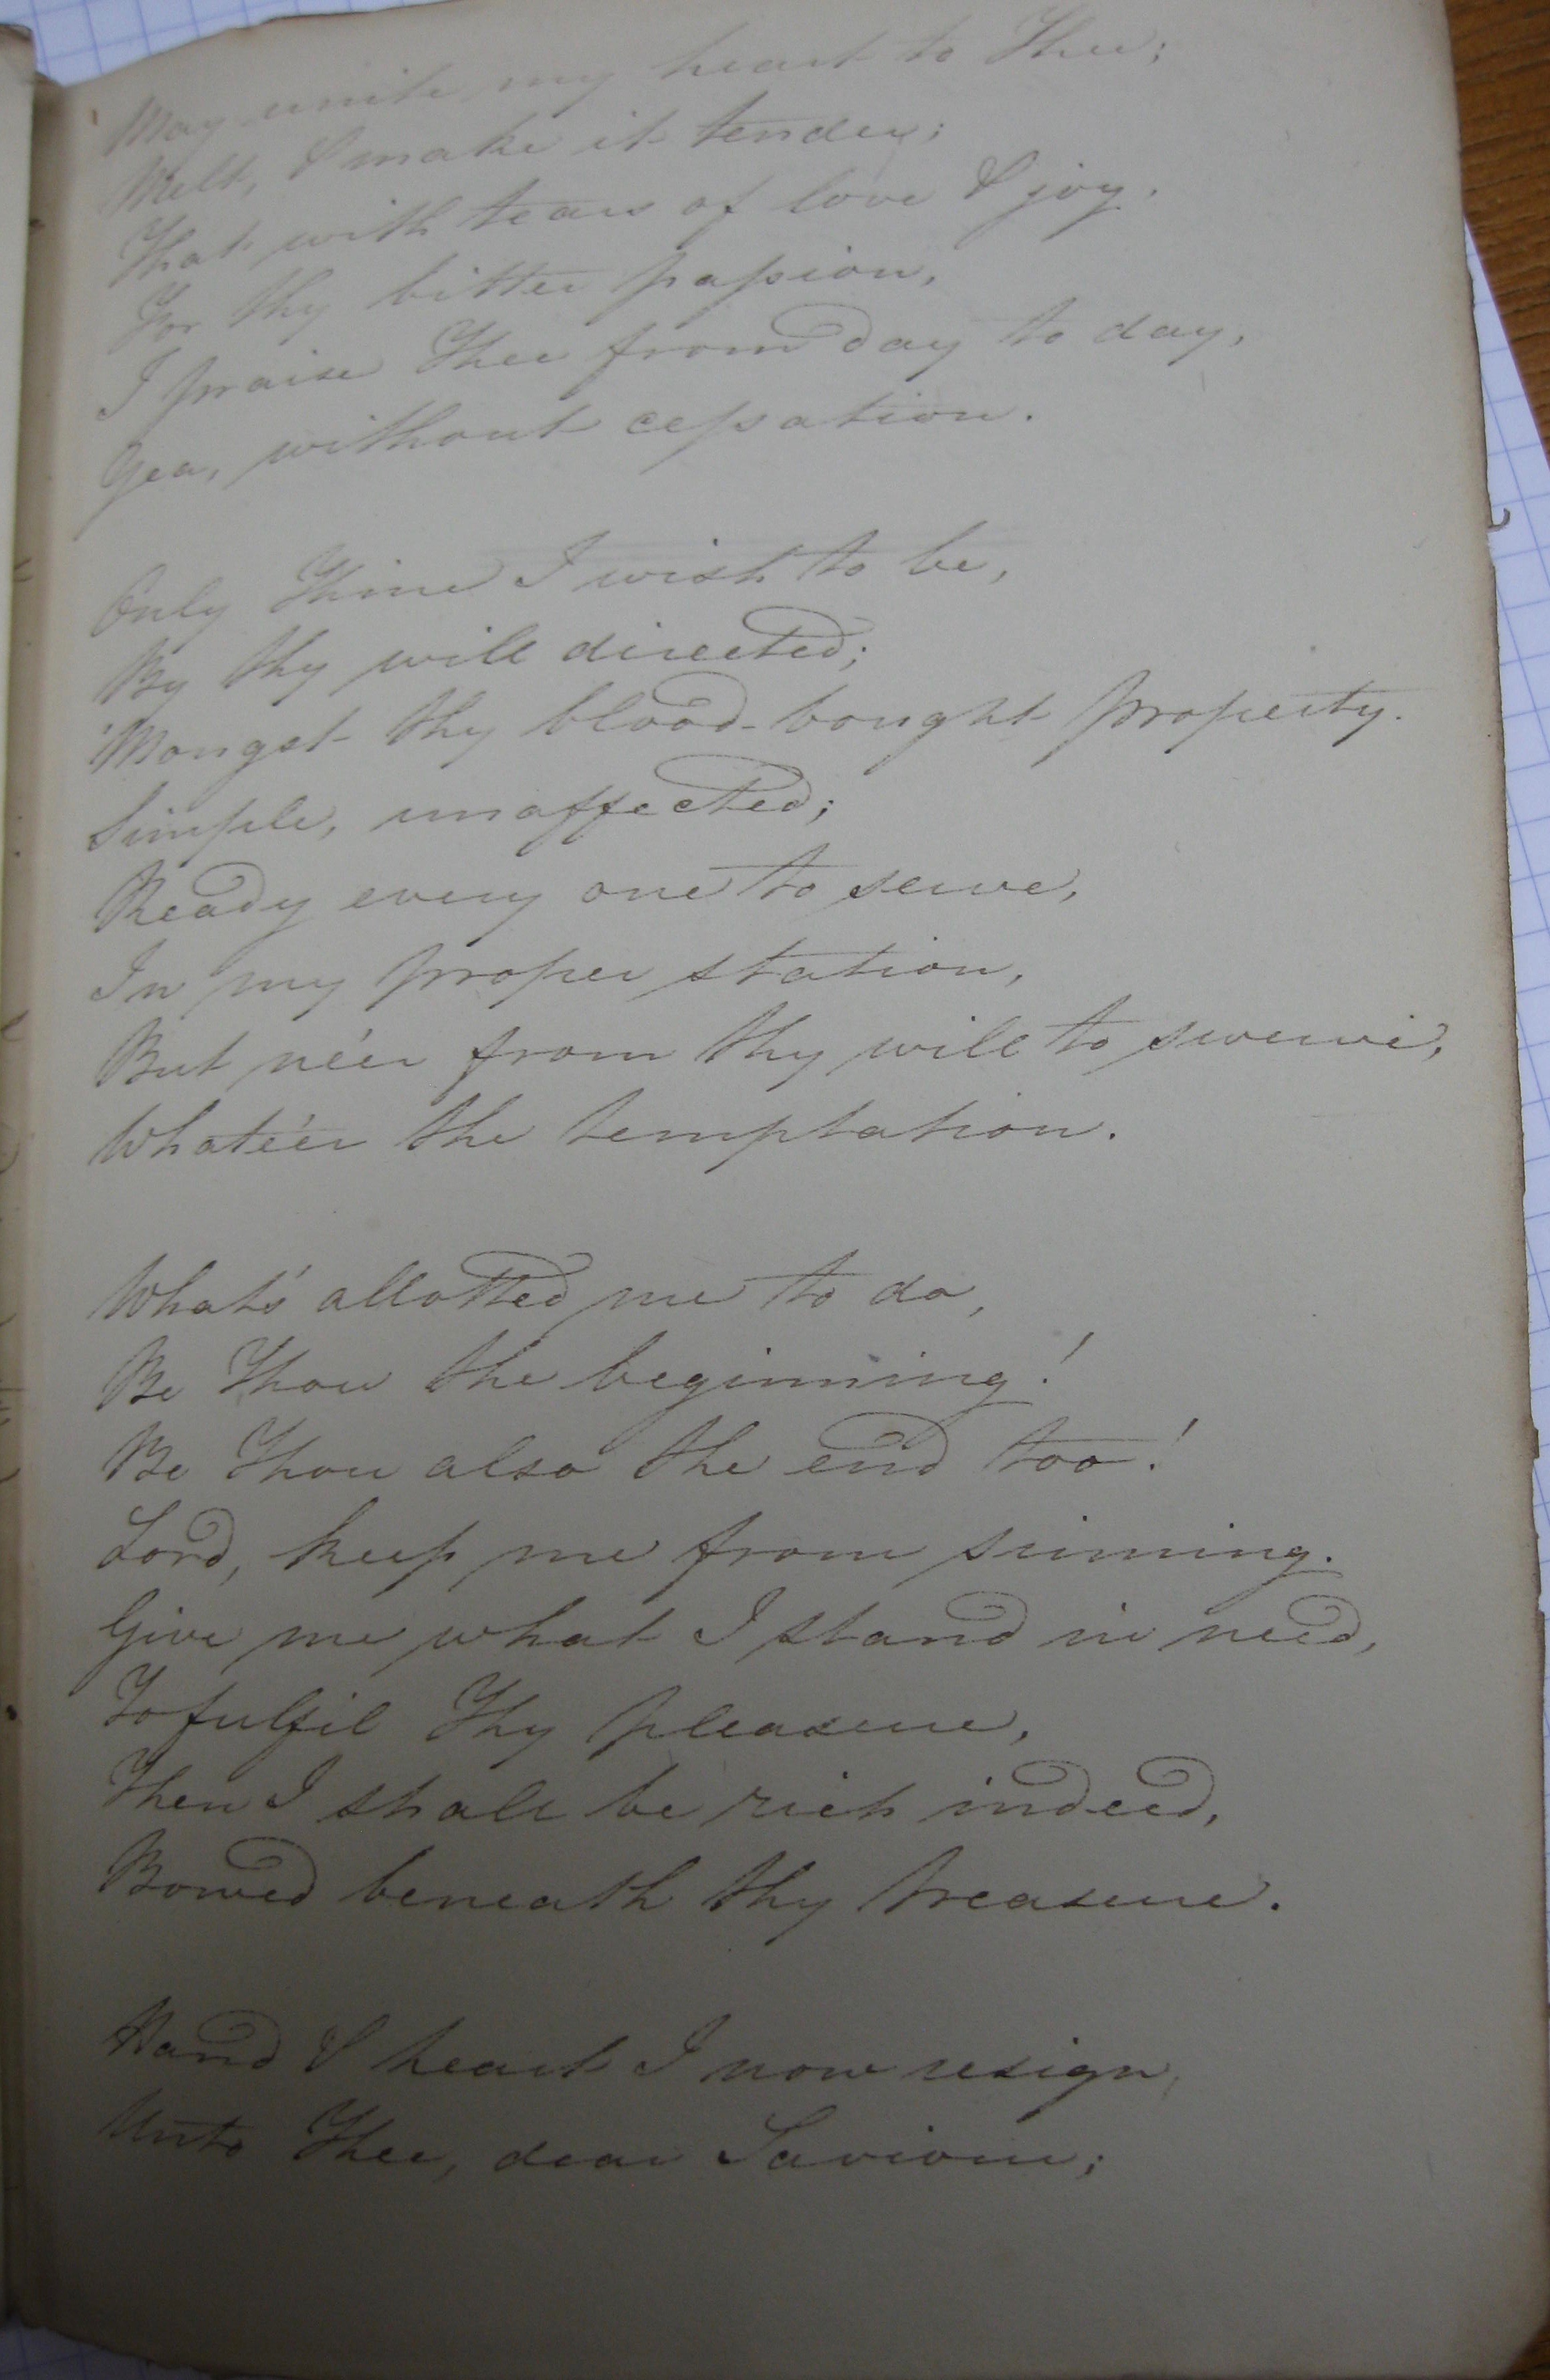 May unite my heart to Thee;
Melt, & make it tender;
That with tears of love & joy.
For thy bitter passion,
I praise Thee from day to day,
Yea, without cessation.
Only Thine I wish to be,
By thy will directed;
'Mongst thy blood-bought property.
Simple, unaffected;
Ready every one to serve,
In my proper station,
But ne'er from thy will to swerve,
Whate'er the temptation.
What's allotted me to do,
Be Thou the beginning!
Be Thou also the end too!
Lord, keep me from sinning.
Give me what I stand in need,
To fulfil Thy pleasure,
Then I shall be rich indeed,
Bowed beneath thy treasure.
Hand & heart I now resign,
Unto Thee, dear Saviour;